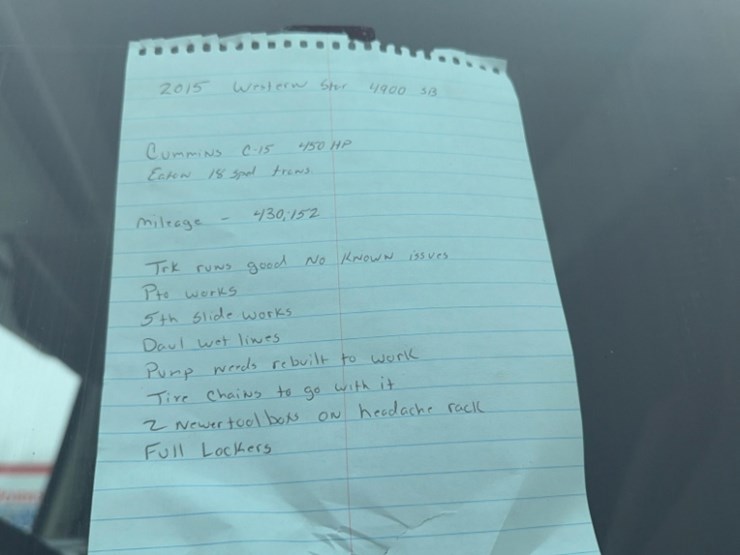 2015 Western Star 4900 SB
Cummins C-15 450 HP
Eaton 18 spd trans
Mileage - 430,152
Trk runs good No Known issues
Pto works
5th slide works
Daul wet lines
Pump needs rebuilt to work
Tire Chains to go with it
2 Newer tool boxs on headache rack
Full Lockers